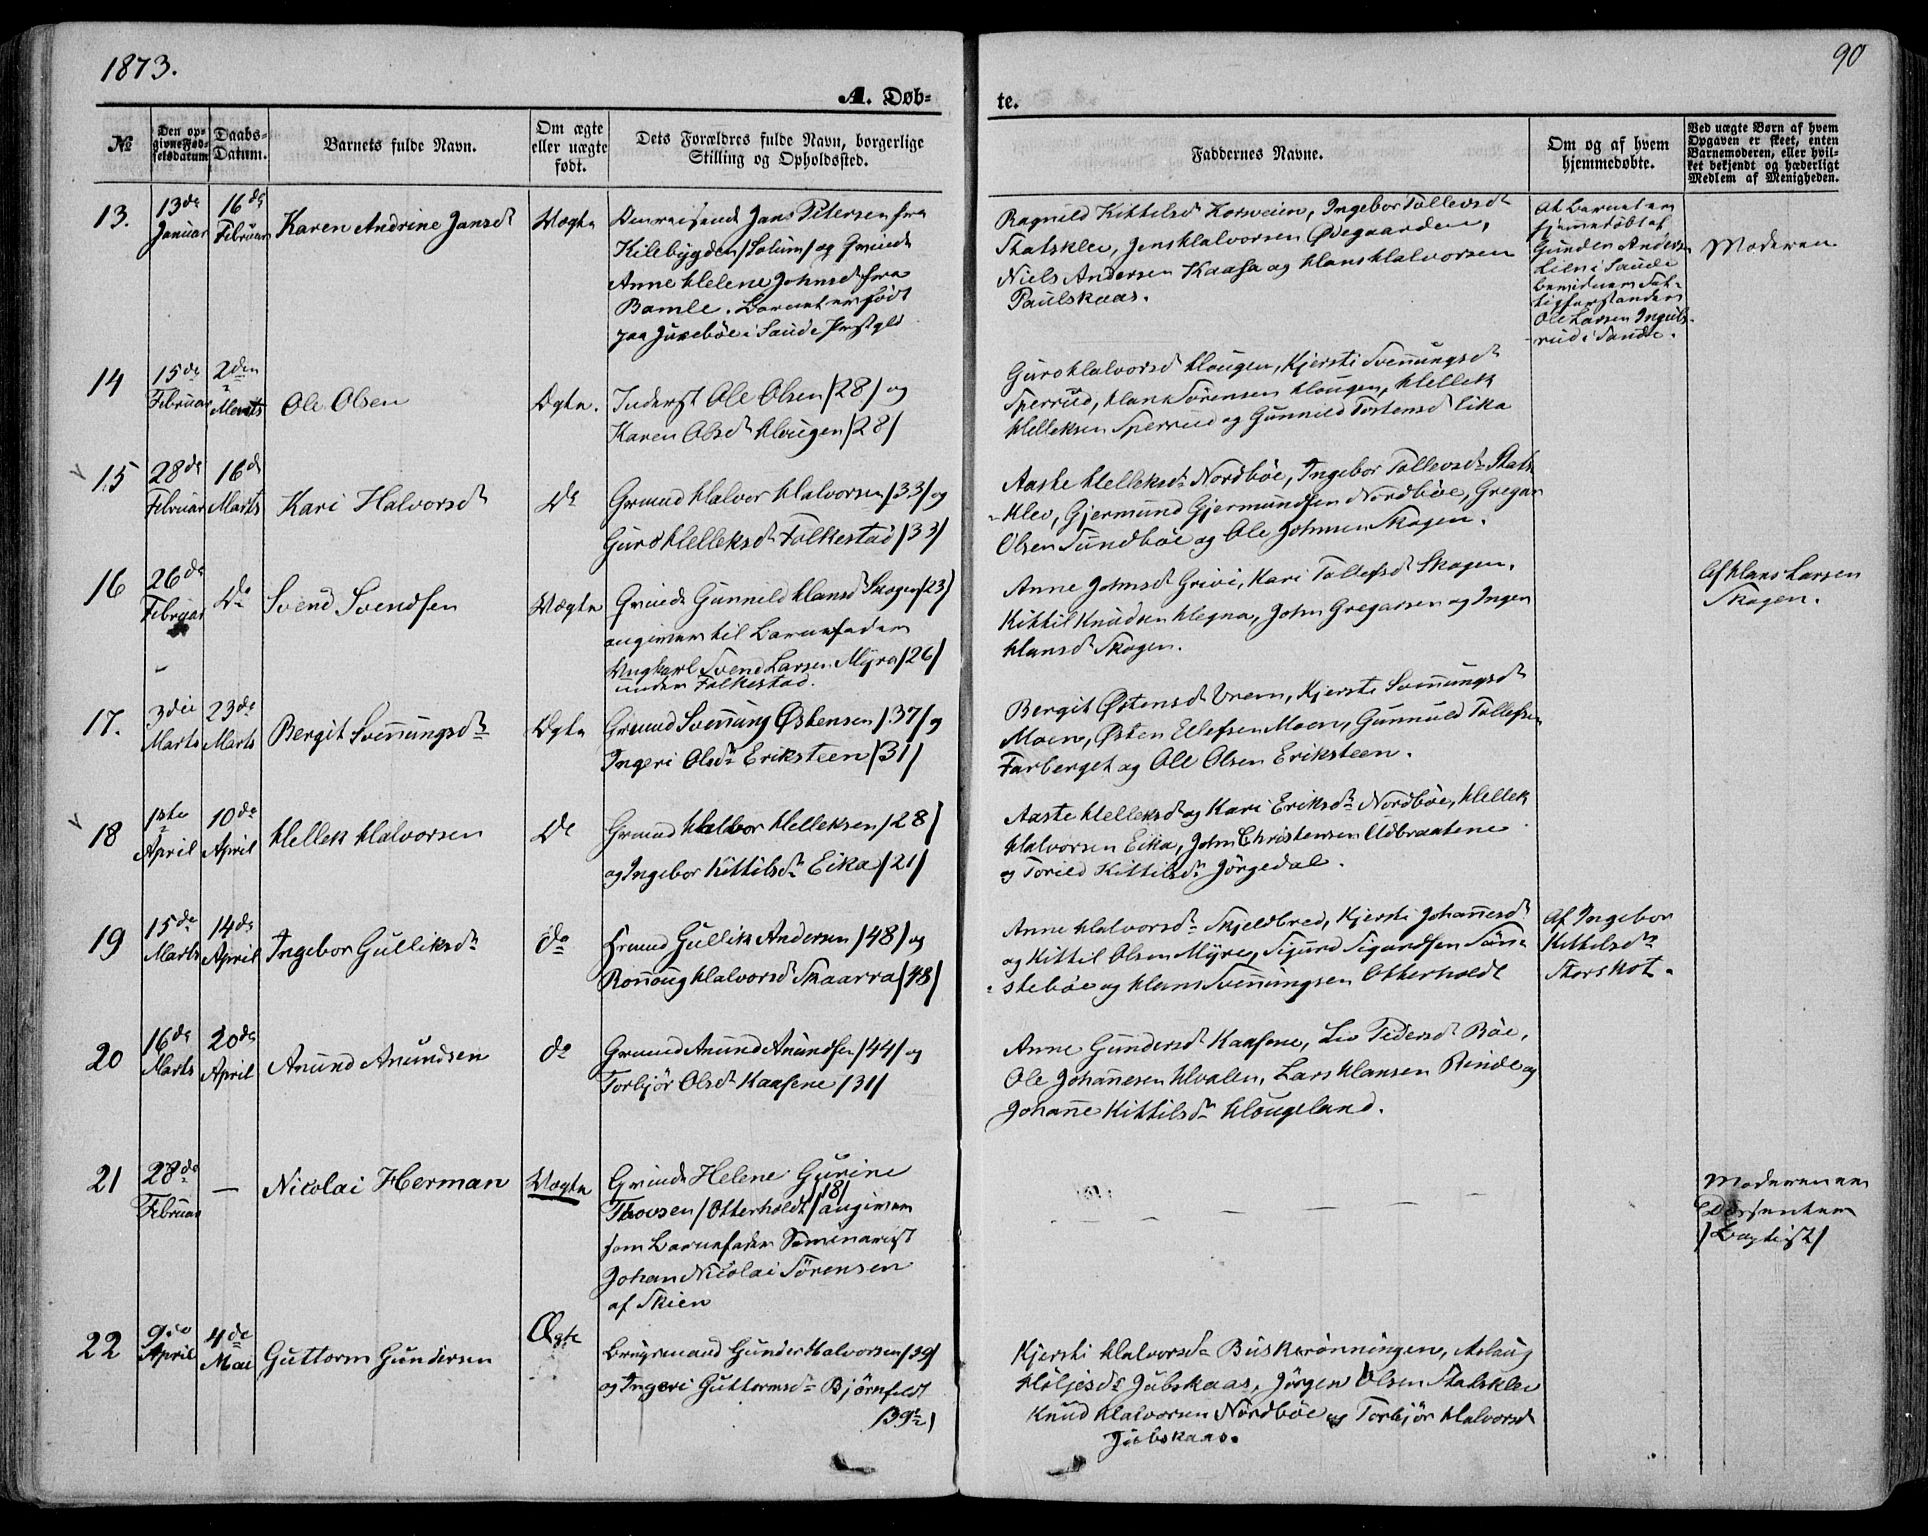 1873.
90
A. Døb-
te.
№
Den op-
givne Fød-
selsdatum
Daabs-
Datum.
Barnets fulde Navn.
Om ægte
eller uægte
født.
Dets Forældres fulde Navn, borgerlige
Stilling og Opholdssted.
Faddernes Navne.
Om og af hvem
hjemmedøbte.
Ved uægte Børn af hvem
Opgaven er skeet, enten
Barnemoderen, eller hvil-
ket bekjendt og hæderligt
Medlem af Menigheden.
13.
13de
Januar
16de
Februar
Karen Andrine Jansd
Uægte
Omreisende Jans Petersen fra
Kilebygden /Solum/ og Grinde
Anne Helene Johnsd fra
Bamle. Barnet er født
paa Jurebøe i Saude Prstgld
Ragnild Kittilsd Korsveien, Ingebor Tollevsd
Statsklev, Jens Halvorsen Ødegaarden,
Niels Andersen Kaasa og Hans Halvorsen
Paulskaas.
At Barnet er
hjemmedøbt af
Gunder Andersen
Lien i Saude
bevidner Fat-
tigforstander
Ole Larsen Inguls-
rud i Saude.
Moderen
14
15de
Februar
2den
Marts
Ole Olsen
Ægte.
Inderst Ole Olsen /28/ og
Karen Olsd Hougen /28/
Guro Halvorsd Hougen, Kjersti Svenungsd
Sperrud, Hans Sørensen Hougen, Hellek
Helleksen Sperrud og Gunnild Tostensd Eika
15
28de
Februar
16d
Marts
Kari Halvorsd
Do
Grmand Halvor Halvorsen /33/ og
Guro Helleksd Folkestad /33/
Aaste Helleksd Nordbøe, Ingebor Tollevsd Stats-
-klev, Gjermund Gjermundsen Nordbøe, Gregar
Olsen Sundbøe og Ole Johnsen Skogen.
16
26de
Februar
Do
Svend Svendsen
Uægte
Grinde Gunnild Hansd Skogen /23/
angiver til Barnefader
Ungkarl Svend Larsen Myra /26/
under Folkestad.
Anne Johnsd Grivi, Kari Tollefsd Skogen,
Kittil Knudsen Hegna, John Gregarsen og Ingen
Hansd Skogen.
Af Hans Larsen
Skogen.
17.
3die
Marts
23de
Marts
Bergit Svenungsd
Ægte
Grmand Svenung Østensen /37/ og
Ingeri Olsd Eriksteen /31/
Bergit Østensd Vrem, Kjersti Svenungsd
Moen, Østen Ellefsen Moen, Gunnuld Tollefsen
Farberget og Ole Olsen Eriksteen.
18
1ste
April
10de
April
Hellek Halvorsen
Do
Grmand Halvor Helleksen /28/
og Ingebor Kittilsd Eika /21/
Aaste Helleksd og Kari Eriksd Nordbøe, Hellek
Halvorsen Eika, John Christensen Udbraatene
og Torild Kittilsd Jørgedal.
19
15de
Marts
14de
April
Ingebor Gulliksd
do
Grmand Gullik Andersen /48/ og
Ronnoug Halvorsd Skaarra /48/
Anne Halvorsd Skjeldbred, Kjersti Johannesd
og Kittil Olsen Myre, Sigurd Sigurdsen Søn-
-stebøe og Hans Svenningsen Otterholdt
Af Ingebor
Kittilsd
Storskot.
20
16de
Marts
20de
April
Anund Anundsen
do
Grmand Anund Anundsen /44/ og
Torbjør Olsd Kaasene /31/
Anne Gundersd Kaasene, Liv Pedersd Bøe,
Ole Johannesen Hvalen, Lars Hansen Rinde og
Johanne Kittilsd Hougeland.
21
28de
Februar
—
Nicolai Herman
Uægte
Grinde Helene Gurine
Thovsen /Otterholdt/ /18/ angiver
som Barnefader Seminarist
Johan Nicolai Sørensen
af Skien
— — — — —
Moderen er
Dissenter
/Baptist/
22
9de
April
4de
Mai
Guttorm Gundersen
Ægte
Brugsmand Gunder Halvorsen /39/
og Ingeri Guttormsd Bjørnfeldt
/39½/
Kjersti Halvorsd Buskrønningen, Aslaug
Høljesd Jubskaas, Jørgen Olsen Statsklev
Knud Halvorsen Nordbøe og Torbjør Halvorsd
Jubskaas.